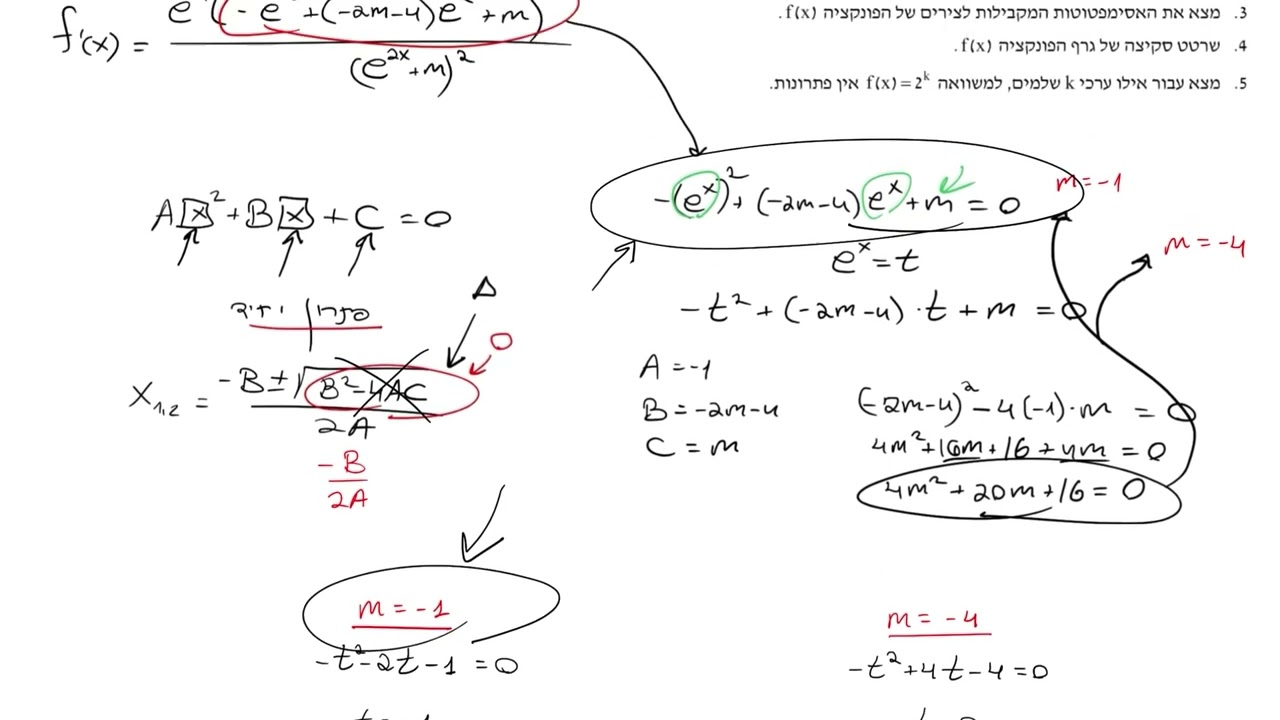 f'(x) = e^x(-e^2x + (-2m-4)e^x + m) / (e^2x + m)^2
3. מצא את האסימפטוטות המקבילות לצירים של הפונקציה f(x).
4. שרטט סקיצה של גרף הפונקציה f(x).
5. מצא עבור אילו ערכי k שלמים, למשוואה f(x) = 2^k אין פתרונות.
-(e^x)^2 + (-2m-4)e^x + m = 0
m = -1
m = -4
e^x = t
-t^2 + (-2m-4)·t + m = 0
Ax^2 + Bx + C = 0
Δ
0
x1,2 = -B±√B^2-4AC / 2A
-B / 2A
A = -1
B = -2m-4
C = m
(-2m-4)^2 - 4(-1)·m = 0
4m^2 + 16m + 16 + 4m = 0
4m^2 + 20m + 16 = 0
m = -1
-t^2-2t-1 = 0
m = -4
-t^2+4t-4=0